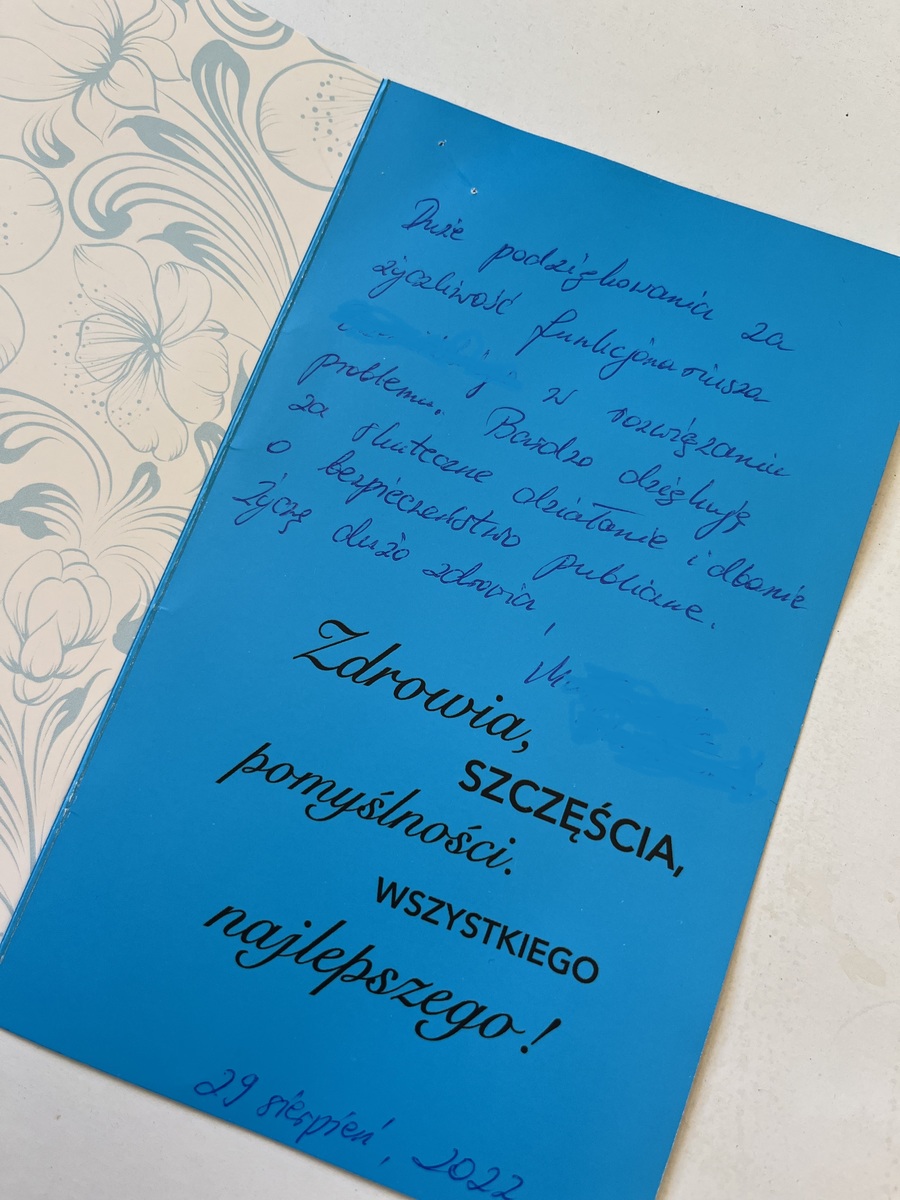 Duże podziękowania za
życzliwość funkcjonariusza
w rozwiązaniu
problemu. Bardzo dziękuję
za skuteczne działanie i dbanie
o bezpieczeństwo publiczne.
Życzę dużo zdrowia,
M.
Zdrowia,
SZCZĘŚCIA,
pomyślności.
WSZYSTKIEGO
najlepszego!
29 sierpień, 2022